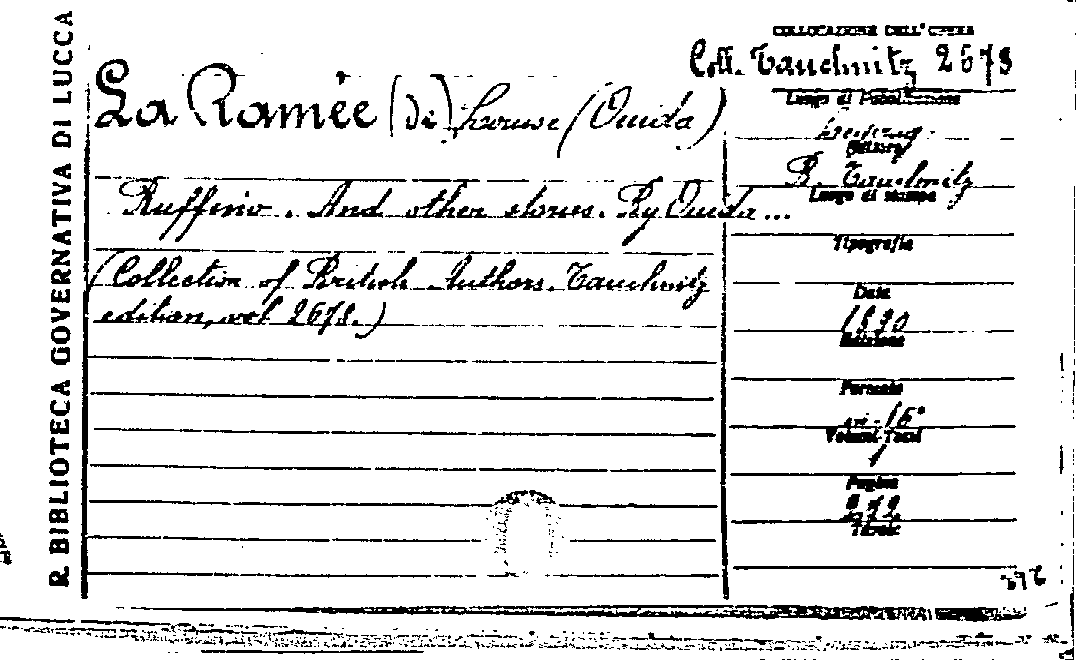 R. BIBLIOTECA GOVERNATIVA DI LUCCA
La Ramée (De) Louise (Ouida)
Ruffino. And other stories. By Ouida...
(Collection of British Authors. Tauchnitz
edition, vol 2678.)
COLLOCAZIONE DELL'OPERA
Coll. Tauchnitz 2678
Luogo di Pubblicazione
Editore
B. Tauchnitz
Luogo di stampa
Tipografia
Data
1890
Edizione
Formato
in-16°
Volumi Totali
1
Pagine
272
Tavole